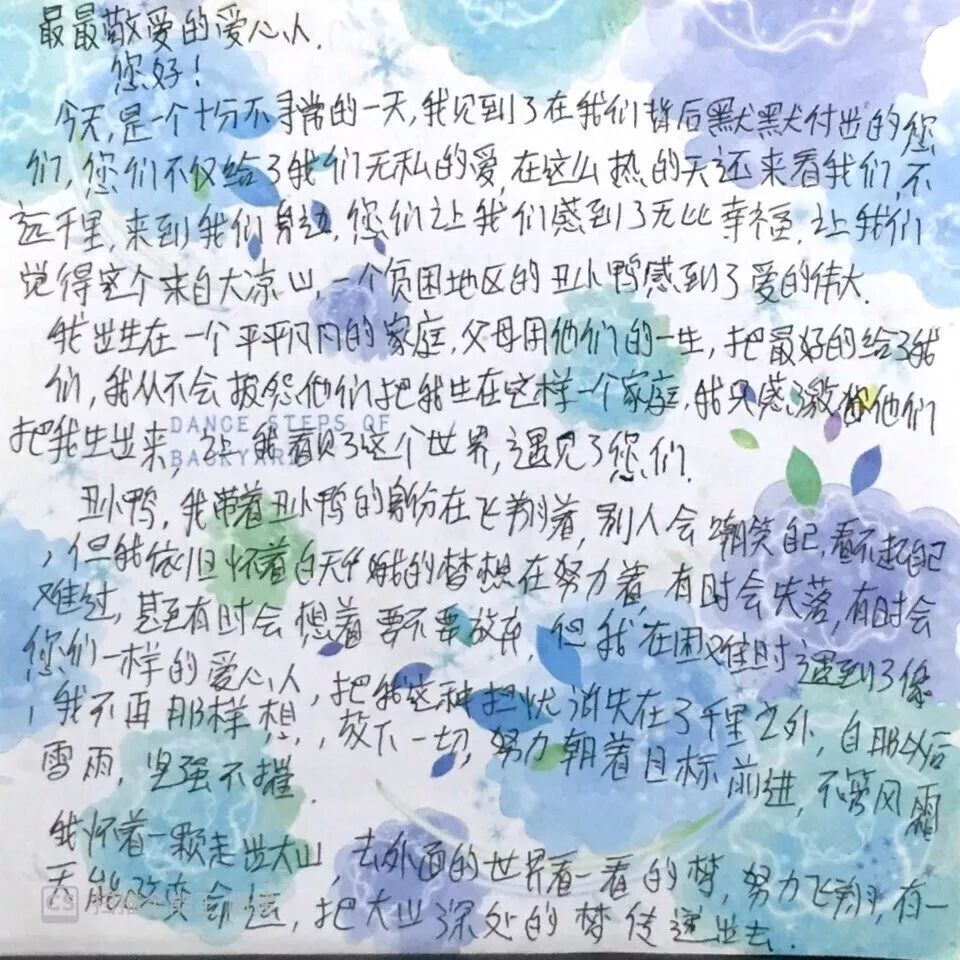 最最敬爱的爱心人.
您好!
今天,是一个十分不寻常的一天,我见到了在我们背后默默付出的您
们,您们不仅给了我们无私的爱,在这么热的天还来看我们,不
远千里,来到我们身边.您们让我们感到了无比幸福.让我们
觉得这个来自大凉山,一个贫困地区的丑小鸭感到了爱的伟大.
我出生在一个平平凡凡的家庭,父母用他们的一生,把最好的给了我
们,我从不会报怨他们把我生在这样一个家庭,我只感激他们
把我生出来,让我看见了这个世界,遇见了您们.
DANCE STEPS OF
BACKYAR
丑小鸭,我带着丑小鸭的身份在飞翔着,别人会嘲笑自己,看不起自己
,但我依旧怀着白天鹅的梦想在努力着,有时会失落,有时会
难过,甚至有时会想着要不要放弃,但我在困难时遇到了像
您们一样的爱心人,把我这种担忧消失在了千里之外,自那以后
,我不再那样想,放下一切,努力朝着目标前进,不管风霜
雪雨,坚强不摧.
我怀着一颗走出大山,去外面的世界看一看的梦,努力飞翔,有一
天能改变命运,把大山深处的梦传递出去.
CS